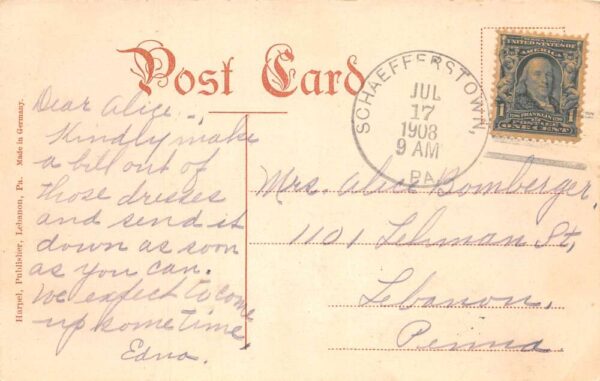 Post Card
Dear Alice -
Kindly make
a bill out of
those dresses
and send it
down as soon
as you can.
We expect to come
up sometime
Edna.
Harpel, Publisher, Lebanon, Pa. Made in Germany.
SCHAEFFERSTOWN,
JUL
17
1908
9 AM
PA.
UNITED STATES OF
AMERICA
1 FRANKLIN 1
ONE CENT
Mrs. Alice Bomberger,
1101 Lehman St,
Lebanon,
Penna.